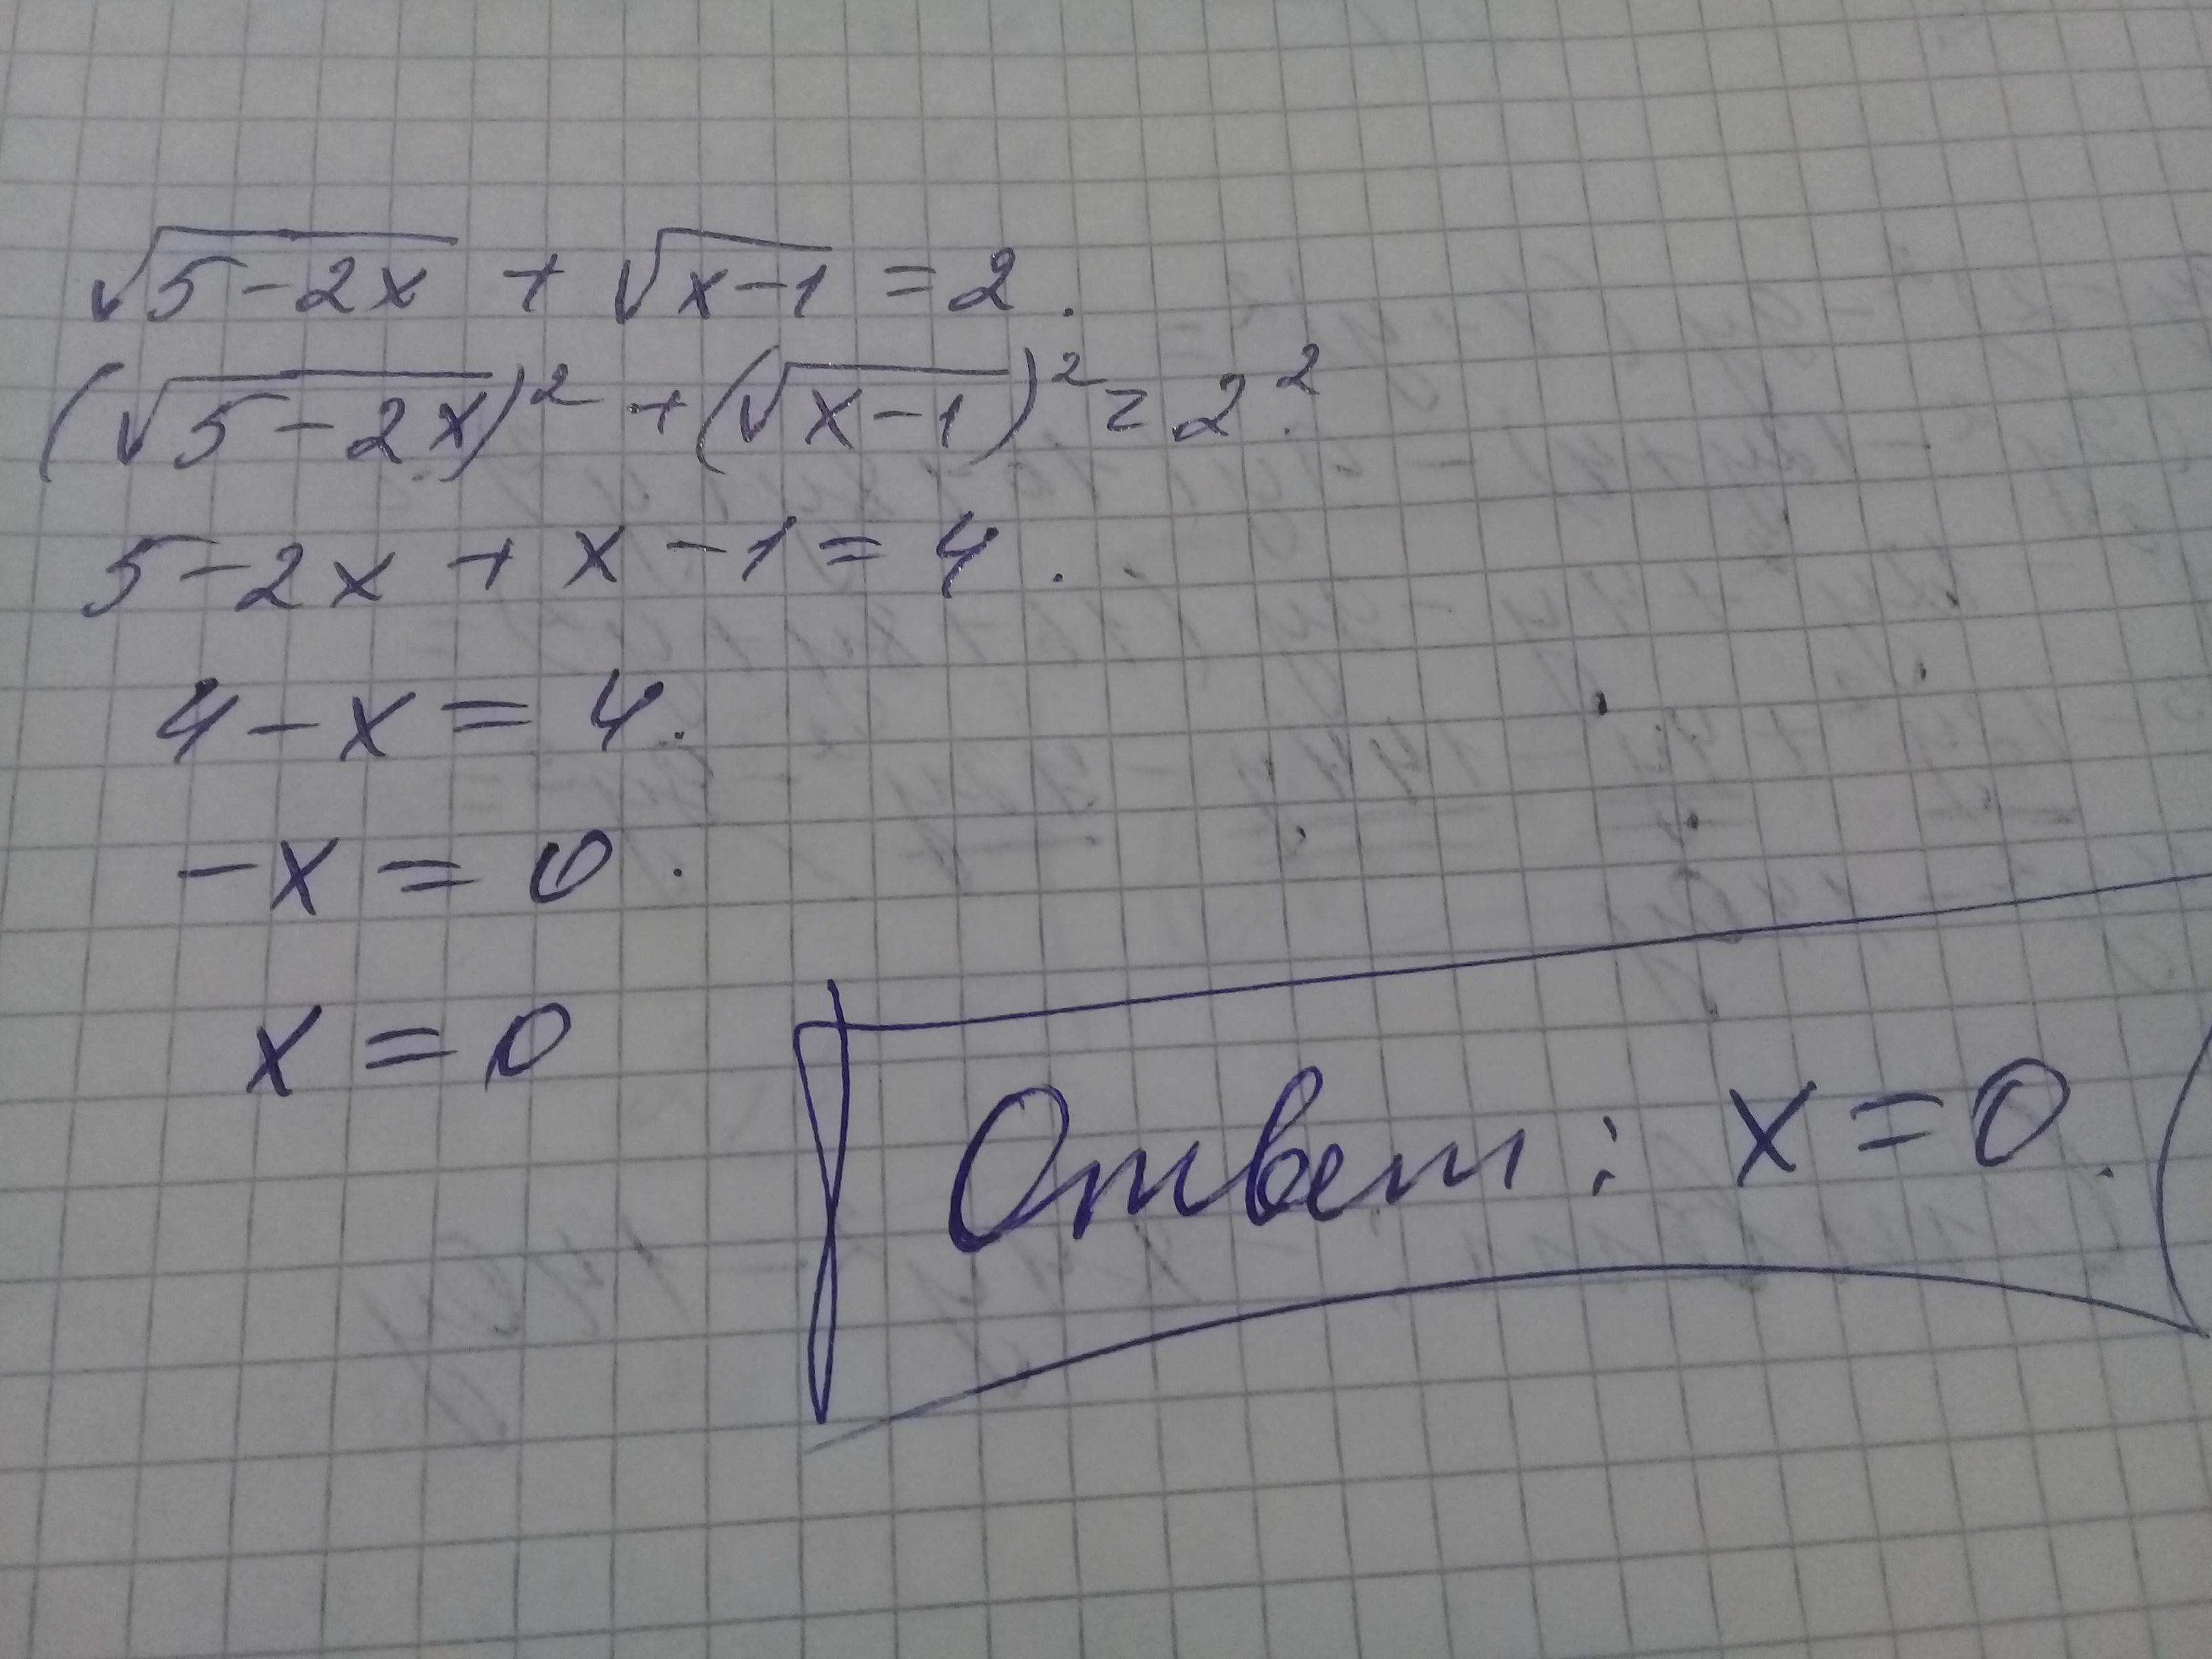 √(5-2x) + √(x-1) = 2.
(√(5-2x))² + (√(x-1))² = 2².
5-2x + x-1 = 4.
4-x = 4.
-x = 0.
x = 0
Ответ: x=0.